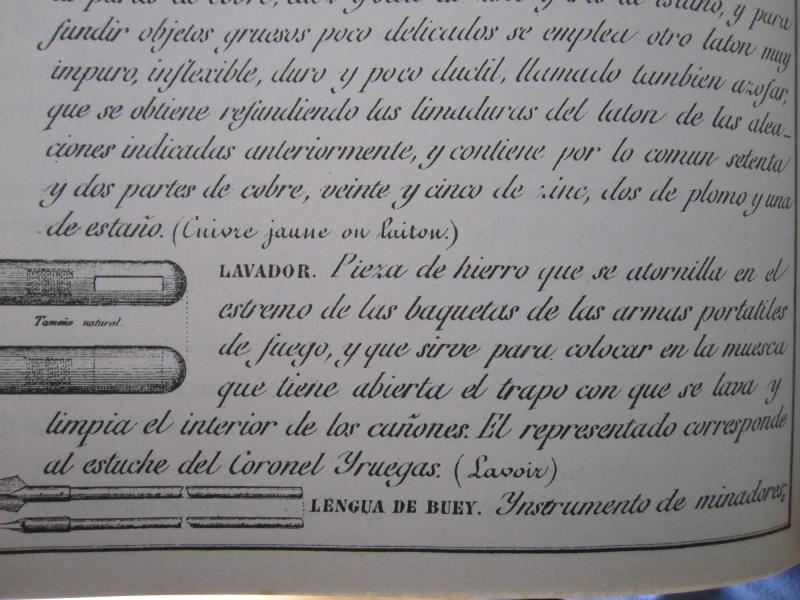 de partes de cobre, diez y ocho de zinc y tres de estaño, y para
fundir objetos gruesos poco delicados se emplea otro laton muy
impuro, inflexible, duro y poco ductil, llamado tambien azofar,
que se obtiene refundiendo las limaduras del laton de las alea_
ciones indicadas anteriormente, y contiene por lo comun setenta
y dos partes de cobre, veinte y cinco de zinc, dos de plomo y una
de estaño. (Cuivre jaune ou laiton.)
LAVADOR. Pieza de hierro que se atornilla en el
estremo de las baquetas de las armas portatiles
Tamaño natural.
de fuego, y que sirve para colocar en la muesca
que tiene abierta el trapo con que se lava y
limpia el interior de los cañones. El representado corresponde
al estuche del Coronel Yruegas. (Lavoir)
LENGUA DE BUEY. Ynstrumento de minadores,